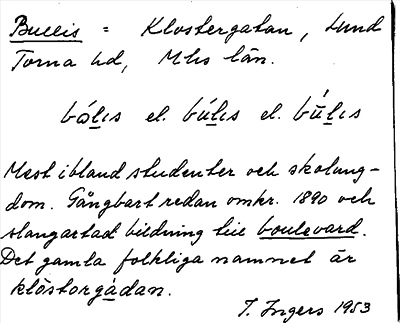 Bullis = Klostergatan, Lund
Torna hd, Mhs län.
bólis el. búlis el. bū́lis
Mest ibland studenter och skolung-
dom. Gångbart redan omkr. 1890 och
slangartad bildning till boulevard.
Det gamla folkliga namnet är
klöstorgàdan.
T. Ingers 1953